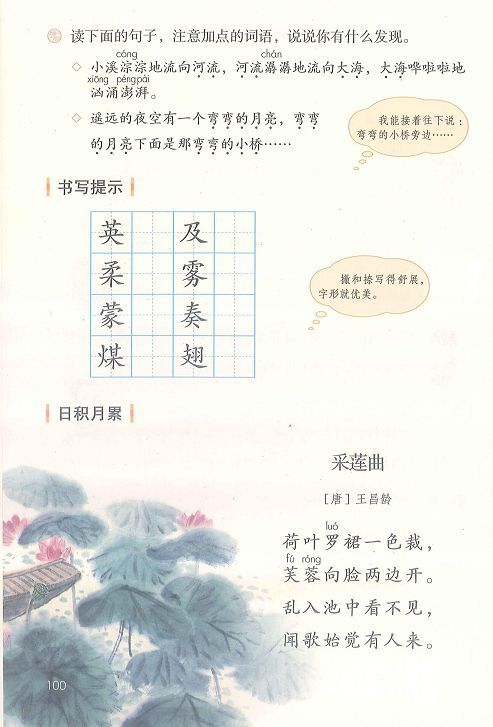 读下面的句子，注意加点的词语，说说你有什么发现。
cóng chán
◇ 小溪淙淙地流向河流，河流潺潺地流向大海，大海哗啦啦地
xiōng péngpài
汹涌澎湃。
◇ 遥远的夜空有一个弯弯的月亮，弯弯
的月亮下面是那弯弯的小桥……
我能接着往下说：
弯弯的小桥旁边……
书写提示
英 及
柔 雾
蒙 奏
煤 翅
撇和捺写得舒展，
字形就优美。
日积月累
采莲曲
［唐］王昌龄
luó
荷叶罗裙一色裁，
fú róng
芙蓉向脸两边开。
乱入池中看不见，
闻歌始觉有人来。
100